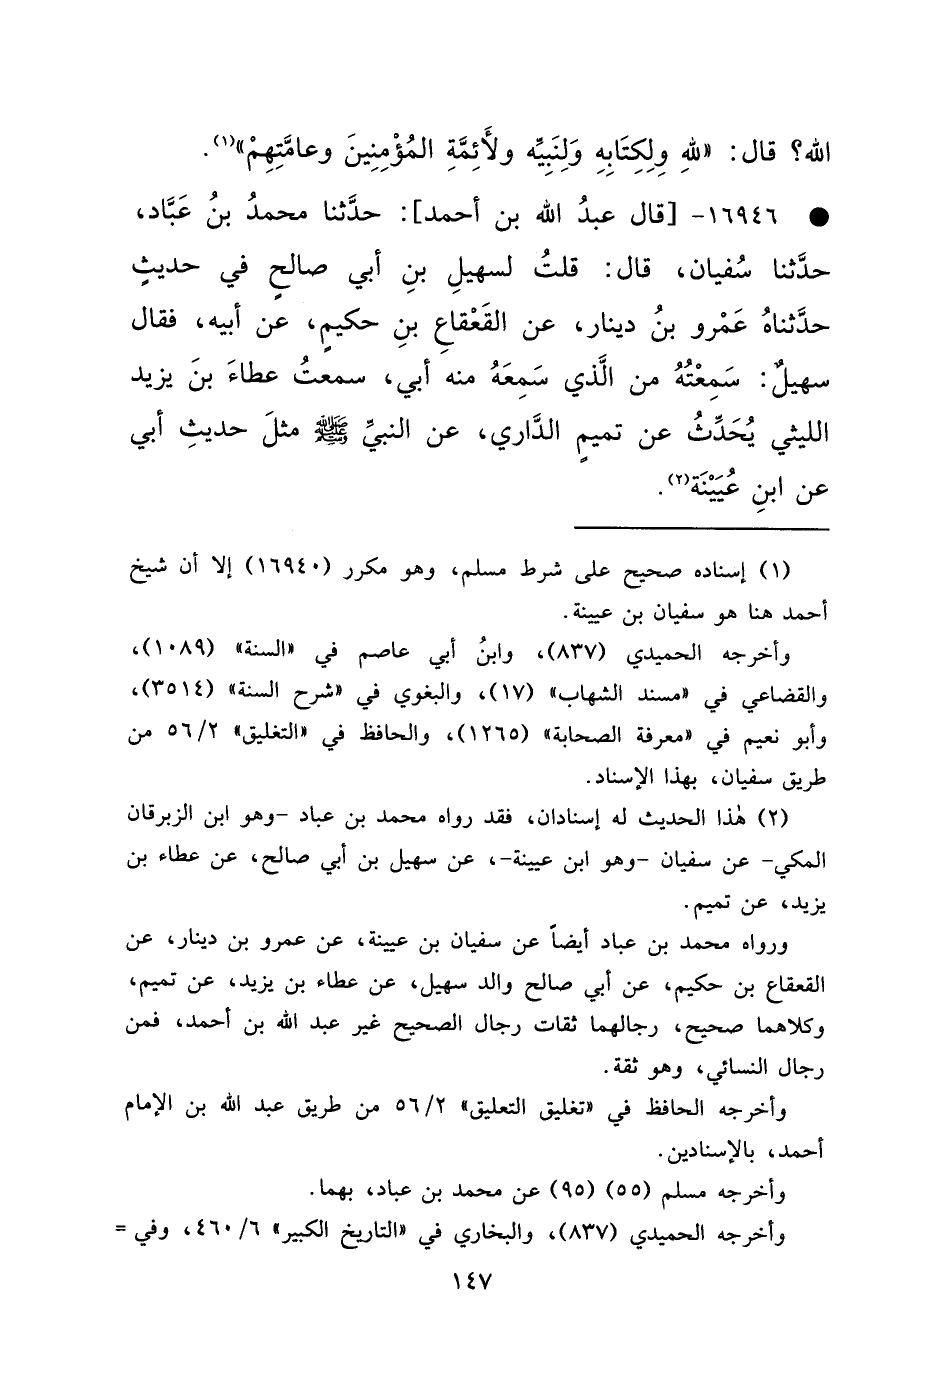 الله؟ قال: «للهِ ولِكِتَابِهِ وَلِنَبِيِّه ولأَئِمَّةِ المُؤْمِنِينَ وعامَّتِهِمْ»(١).
● ١٦٩٤٦- [قال عبدُ الله بن أحمد]: حدَّثنا محمدُ بنُ عَبَّاد،
حدَّثنا سُفيان، قال: قلتُ لسهيلِ بنِ أبي صالحٍ في حديثٍ
حدَّثناهُ عَمْرو بنُ دينار، عن القَعْقاعِ بنِ حكيمٍ، عن أبيه، فقال
سهيلٌ: سَمِعْتُهُ من الَّذي سَمِعَهُ منه أبي، سمعتُ عطاءَ بنَ يزيد
الليثي يُحَدِّثُ عن تميمٍ الدَّاري، عن النبيِّ ﷺ مثلَ حديثِ أبي
عن ابنِ عُيَيْنَة(٢).
(١) إسناده صحيح على شرط مسلم، وهو مكرر (١٦٩٤٠) إلا أن شيخ
أحمد هنا هو سفيان بن عيينة.
وأخرجه الحميدي (٨٣٧)، وابنُ أبي عاصم في «السنة» (١٠٨٩)،
والقضاعي في «مسند الشهاب» (١٧)، والبغوي في «شرح السنة» (٣٥١٤)،
وأبو نعيم في «معرفة الصحابة» (١٢٦٥)، والحافظ في «التغليق» ٥٦/٢ من
طريق سفيان، بهذا الإسناد.
(٢) هٰذا الحديث له إسنادان، فقد رواه محمد بن عباد -وهو ابن الزبرقان
المكي- عن سفيان -وهو ابن عيينة-، عن سهيل بن أبي صالح، عن عطاء بن
يزيد، عن تميم.
ورواه محمد بن عباد أيضاً عن سفيان بن عيينة، عن عمرو بن دينار، عن
القعقاع بن حكيم، عن أبي صالح والد سهيل، عن عطاء بن يزيد، عن تميم،
وكلاهما صحيح، رجالهما ثقات رجال الصحيح غير عبد الله بن أحمد، فمن
رجال النسائي، وهو ثقة.
وأخرجه الحافظ في «تغليق التعليق» ٥٦/٢ من طريق عبد الله بن الإمام
أحمد، بالإسنادين.
وأخرجه مسلم (٥٥) (٩٥) عن محمد بن عباد، بهما.
وأخرجه الحميدي (٨٣٧)، والبخاري في «التاريخ الكبير» ٤٦٠/٦، وفي =
١٤٧